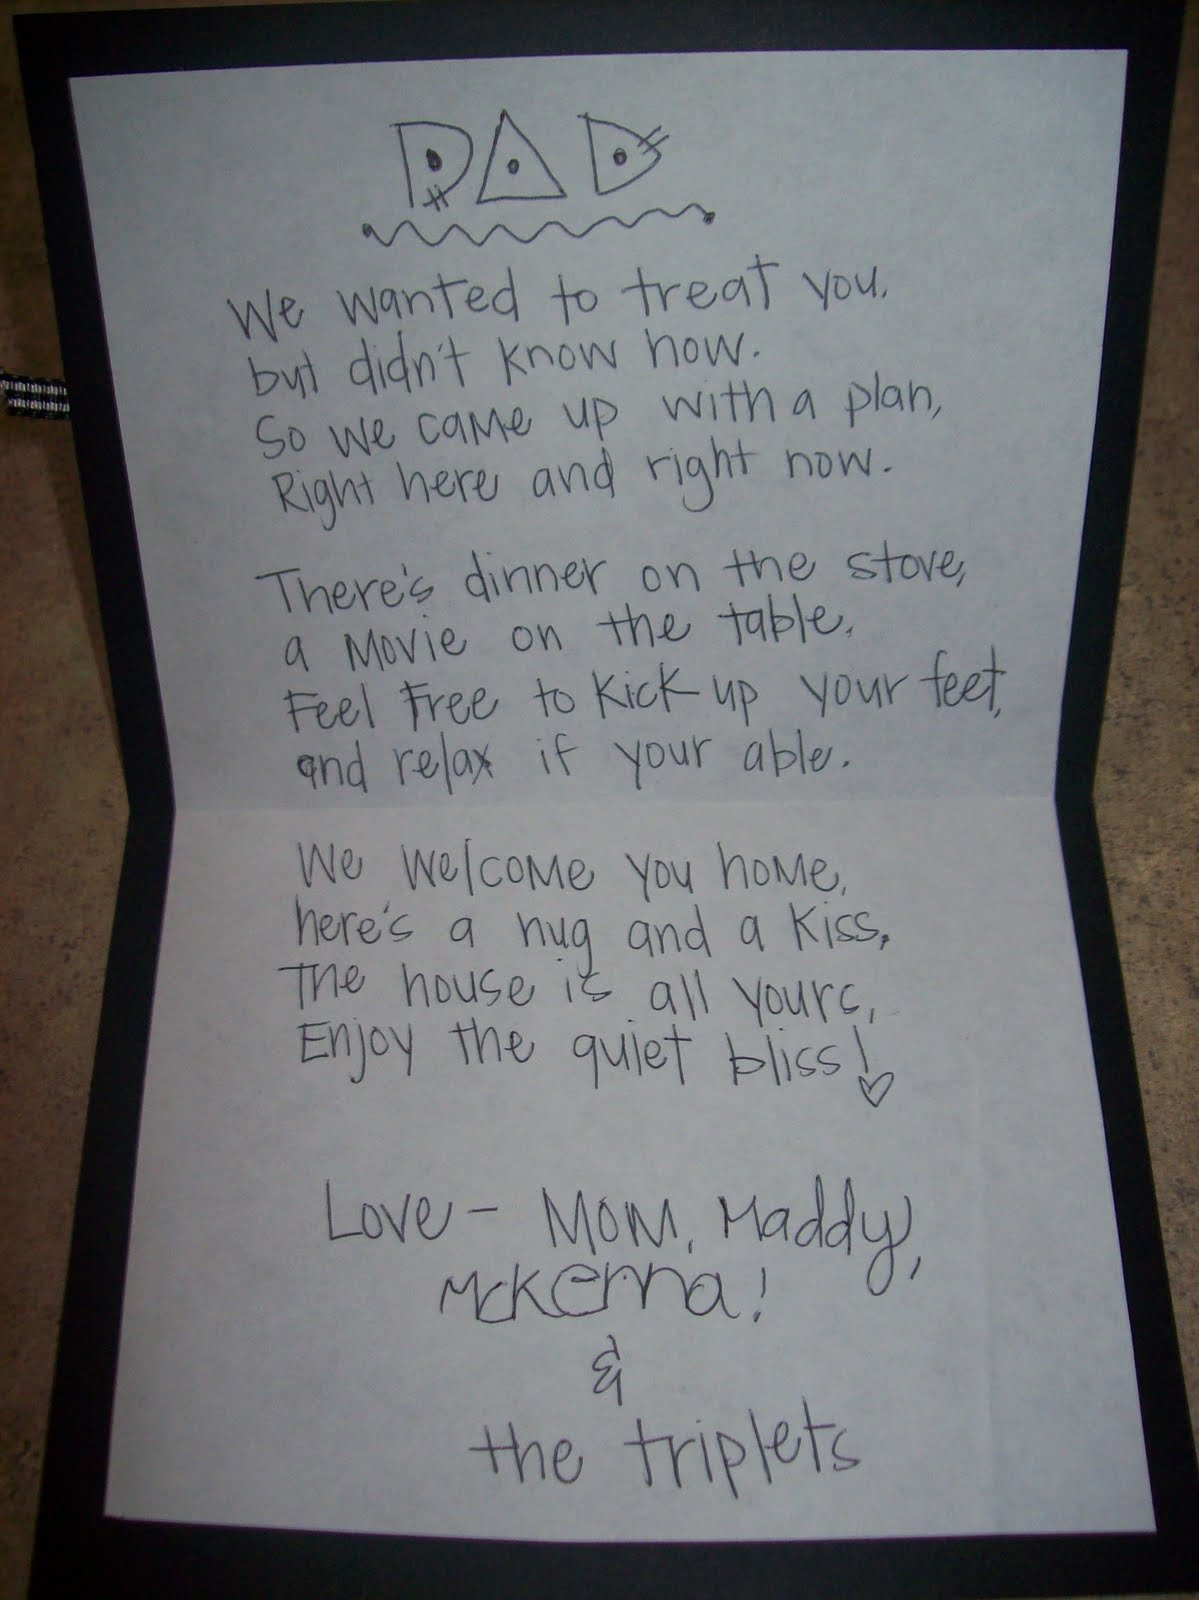 DAD
We wanted to treat you,
but didn't know how.
So we came up with a plan,
Right here and right now.
There's dinner on the stove,
a Movie on the table,
Feel Free to Kick up your feet,
and relax if your able.
We Welcome you home,
here's a hug and a Kiss,
The house is all yours,
Enjoy the quiet bliss!
Love - Mom, Maddy,
McKenna!
&
the triplets